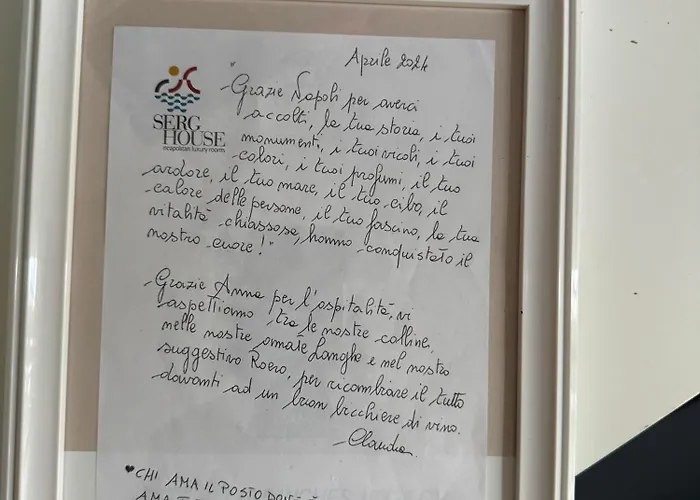 Aprile 2024
SERG HOUSE
neapolitan luxury rooms
"Grazie Napoli per averci
accolti, la tua storia, i tuoi
monumenti, i tuoi vicoli, i tuoi
colori, i tuoi profumi, il tuo
ardore, il tuo mare, il tuo cibo, il
calore delle persone, il tuo fascino, la tua
vitalità chiassosa, hanno conquistato il
nostro cuore!"
Grazie Anna per l'ospitalità, vi
aspettiamo tra le nostre colline,
nelle nostre amate Langhe e nel nostro
suggestivo Roero, per ricambiare il tutto
davanti ad un buon bicchiere di vino.
Claudia
♥CHI AMA IL POSTO
AMA